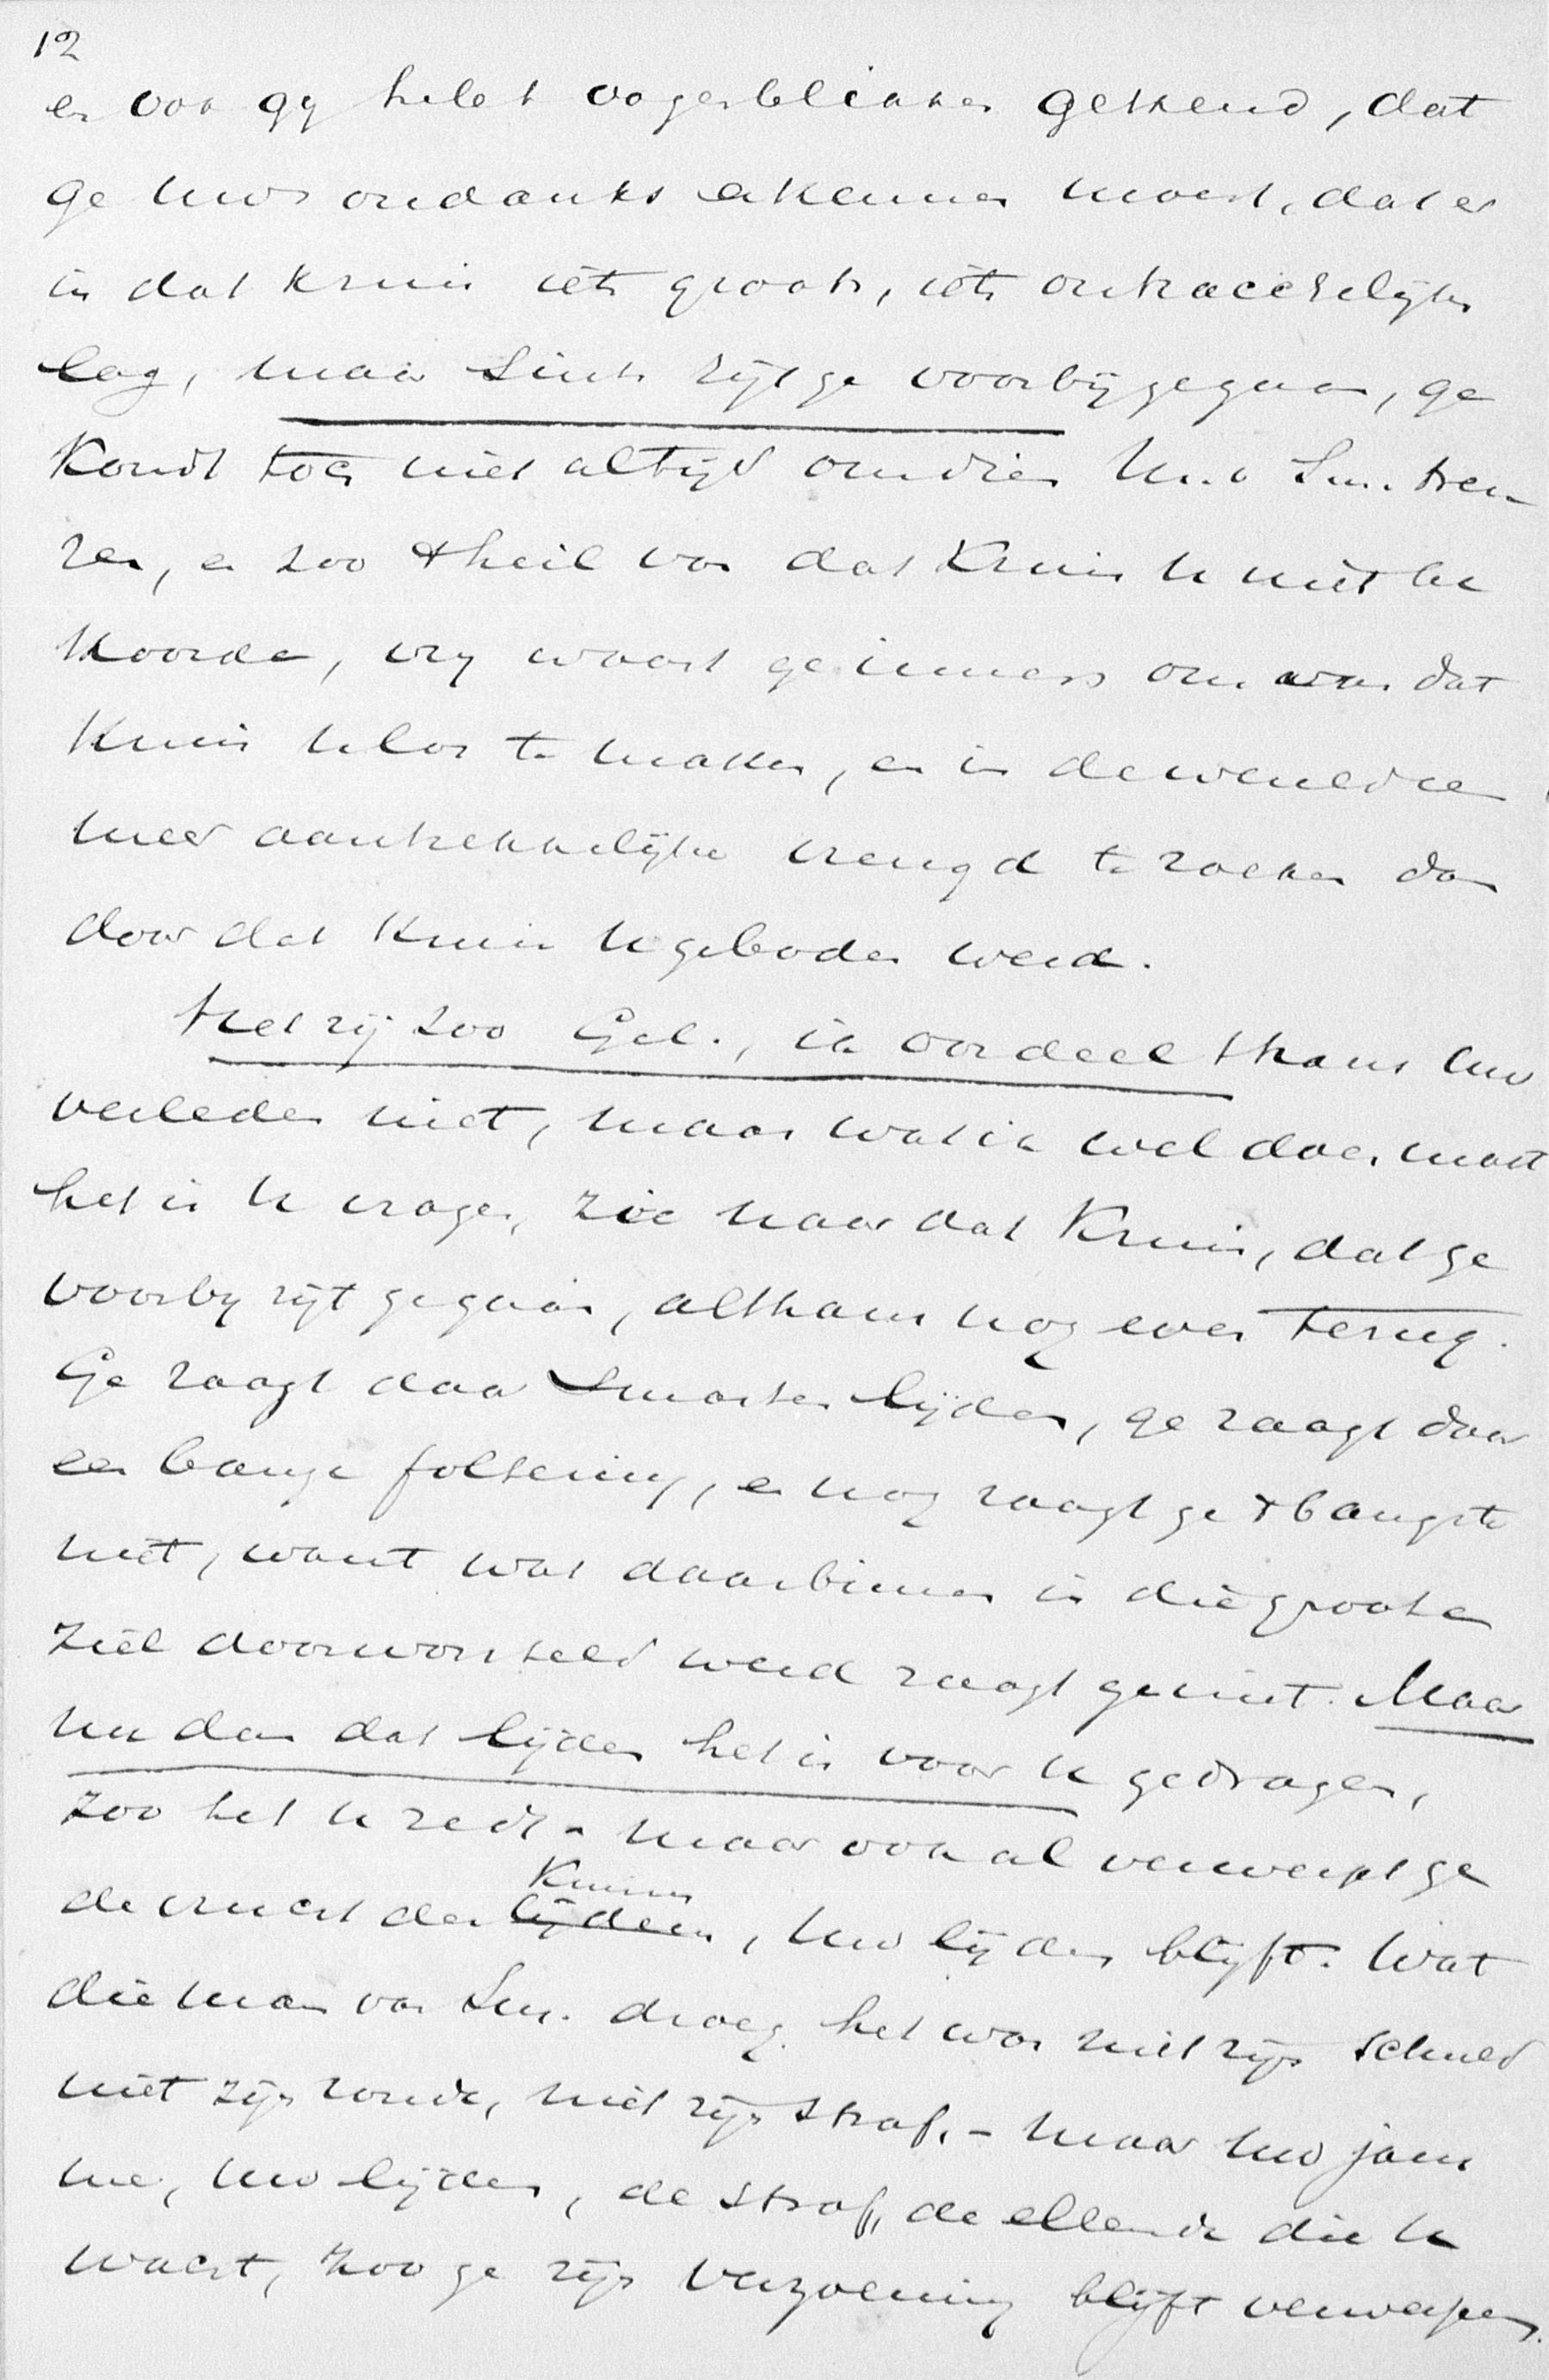 12
en ook gy hebt oogenblikken gekend, dat
ge uws ondanks erkennen moest, dat er
in dat kruis iets groots, iets ontzachelijks
lag, maar sinds zijt ge voorbijgegaan, ge
kondt toch niet altijd om dien M. v. Sm. treu-
ren, en zoo 't heil van dat Kruis u niet be
koorde, vry waart ge immers om van dat
Kruis u los te maken, en in de weereld een
meer aantrekkelijke vreugd te zoeken dan
door dat Kruis u geboden werd.
Het zij zoo Gel., ik oordeel thans uw
verleden niet, maar wat ik wel doen moet
het is u vragen, zie naar dat Kruis, dat ge
voorby zijt gegaan, althans nog even terug.
Ge zaagt daar smarten lijden, ge zaagt daar
een bange foltering, en nog zaagt ge 't bangste
niet, want wat daarbinnen in die groote
ziel doorworsteld werd zaagt ge niet. Maar
nu dan dat lijden het is voor u gedragen,
zoo het u redt - maar ook al verwerpt ge
de vrucht des lijdens Kruises, uw lijden blijft. Wat
die man van Sm. droeg het was niet zijn schuld
niet zijn zonde, niet zijn straf. - maar uw jam
mer, uw lijden, de straf, de ellende die u
wacht, zoo ge zijn verzoening blijft verwerpen.